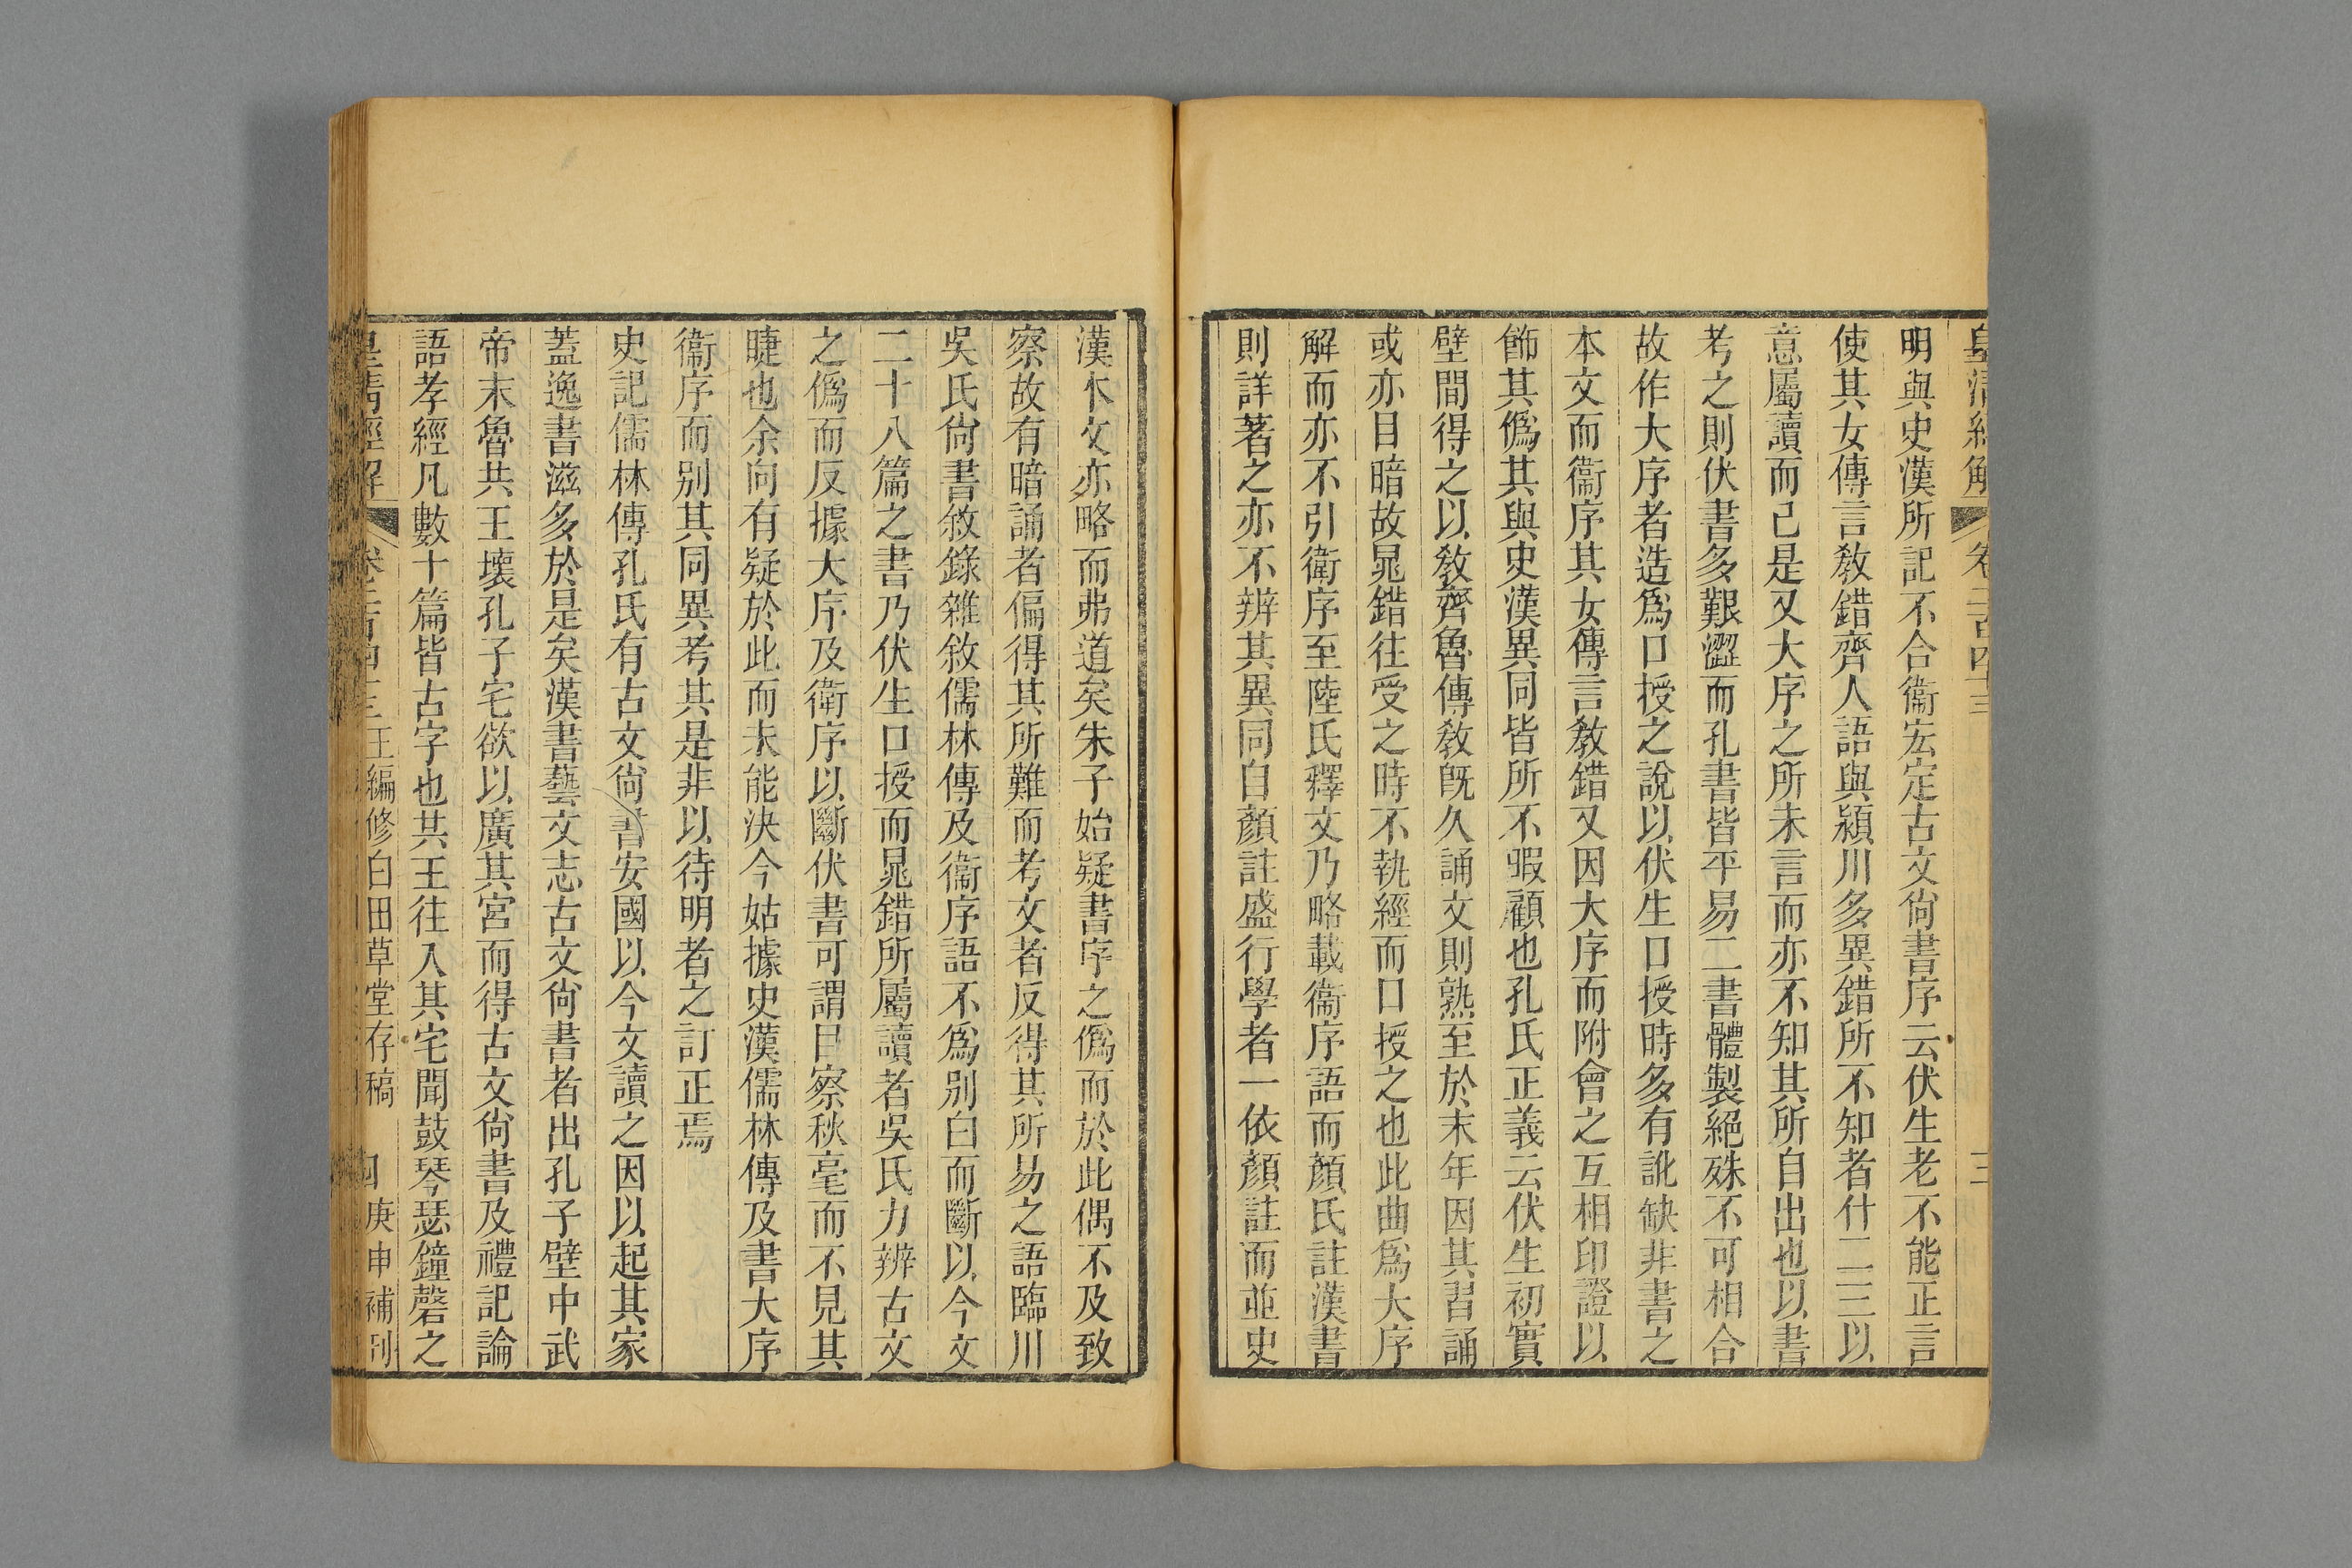 皇清經解 卷二百四十三 三
明與史漢所記不合衞宏定古文尙書序云伏生老不能正言
使其女傳言敎錯齊人語與潁川多異錯所不知者什二三以
意屬讀而已是又大序之所未言而亦不知其所自出也以書
考之則伏書多艱澀而孔書皆平易二書體製絕殊不可相合
故作大序者造爲口授之說以伏生口授時多有訛缺非書之
本文而衞序其女傳言敎錯又因大序而附會之互相印證以
飾其僞其與史漢異同皆所不暇顧也孔氏正義云伏生初實
壁間得之以敎齊魯傳敎旣久誦文則熟至於末年因其習誦
或亦目暗故鼂錯往受之時不執經而口授之也此曲爲大序
解而亦不引衛序至陸氏釋文乃略載衞序語而顏氏註漢書
則詳著之亦不辨其異同自顏註盛行學者一依顏註而並史
漢本文亦略而弗道矣朱子始疑書序之僞而於此偶不及致
察故有暗誦者偏得其所難而考文者反得其所易之語臨川
吳氏尙書敘錄雜敘儒林傳及衞序語不爲別白而斷以今文
二十八篇之書乃伏生口授而鼂錯所屬讀者吳氏力辨古文
之僞而反據大序及衛序以斷伏書可謂目察秋毫而不見其
睫也余向有疑於此而未能決今姑據史漢儒林傳及書大序
衞序而別其同異考其是非以待明者之訂正焉
史記儒林傳孔氏有古文尙書安國以今文讀之因以起其家
蓋逸書滋多於是矣漢書藝文志古文尙書者出孔子壁中武
帝末魯共王壞孔子宅欲以廣其宮而得古文尙書及禮記論
語孝經凡數十篇皆古字也共王往入其宅聞鼓琴瑟鐘磬之
皇清經解 卷二百四十三 王編修白田草堂存稿 四 庚申補刊